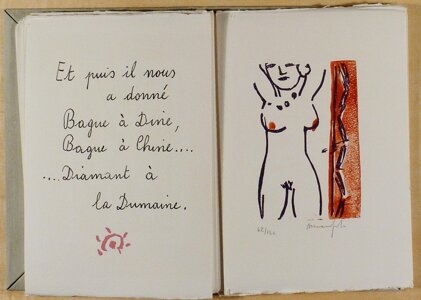 Et puis il nous
a donné
Bague à Dine,
Bague à Chine....
....Diamant à
la Dumaine.